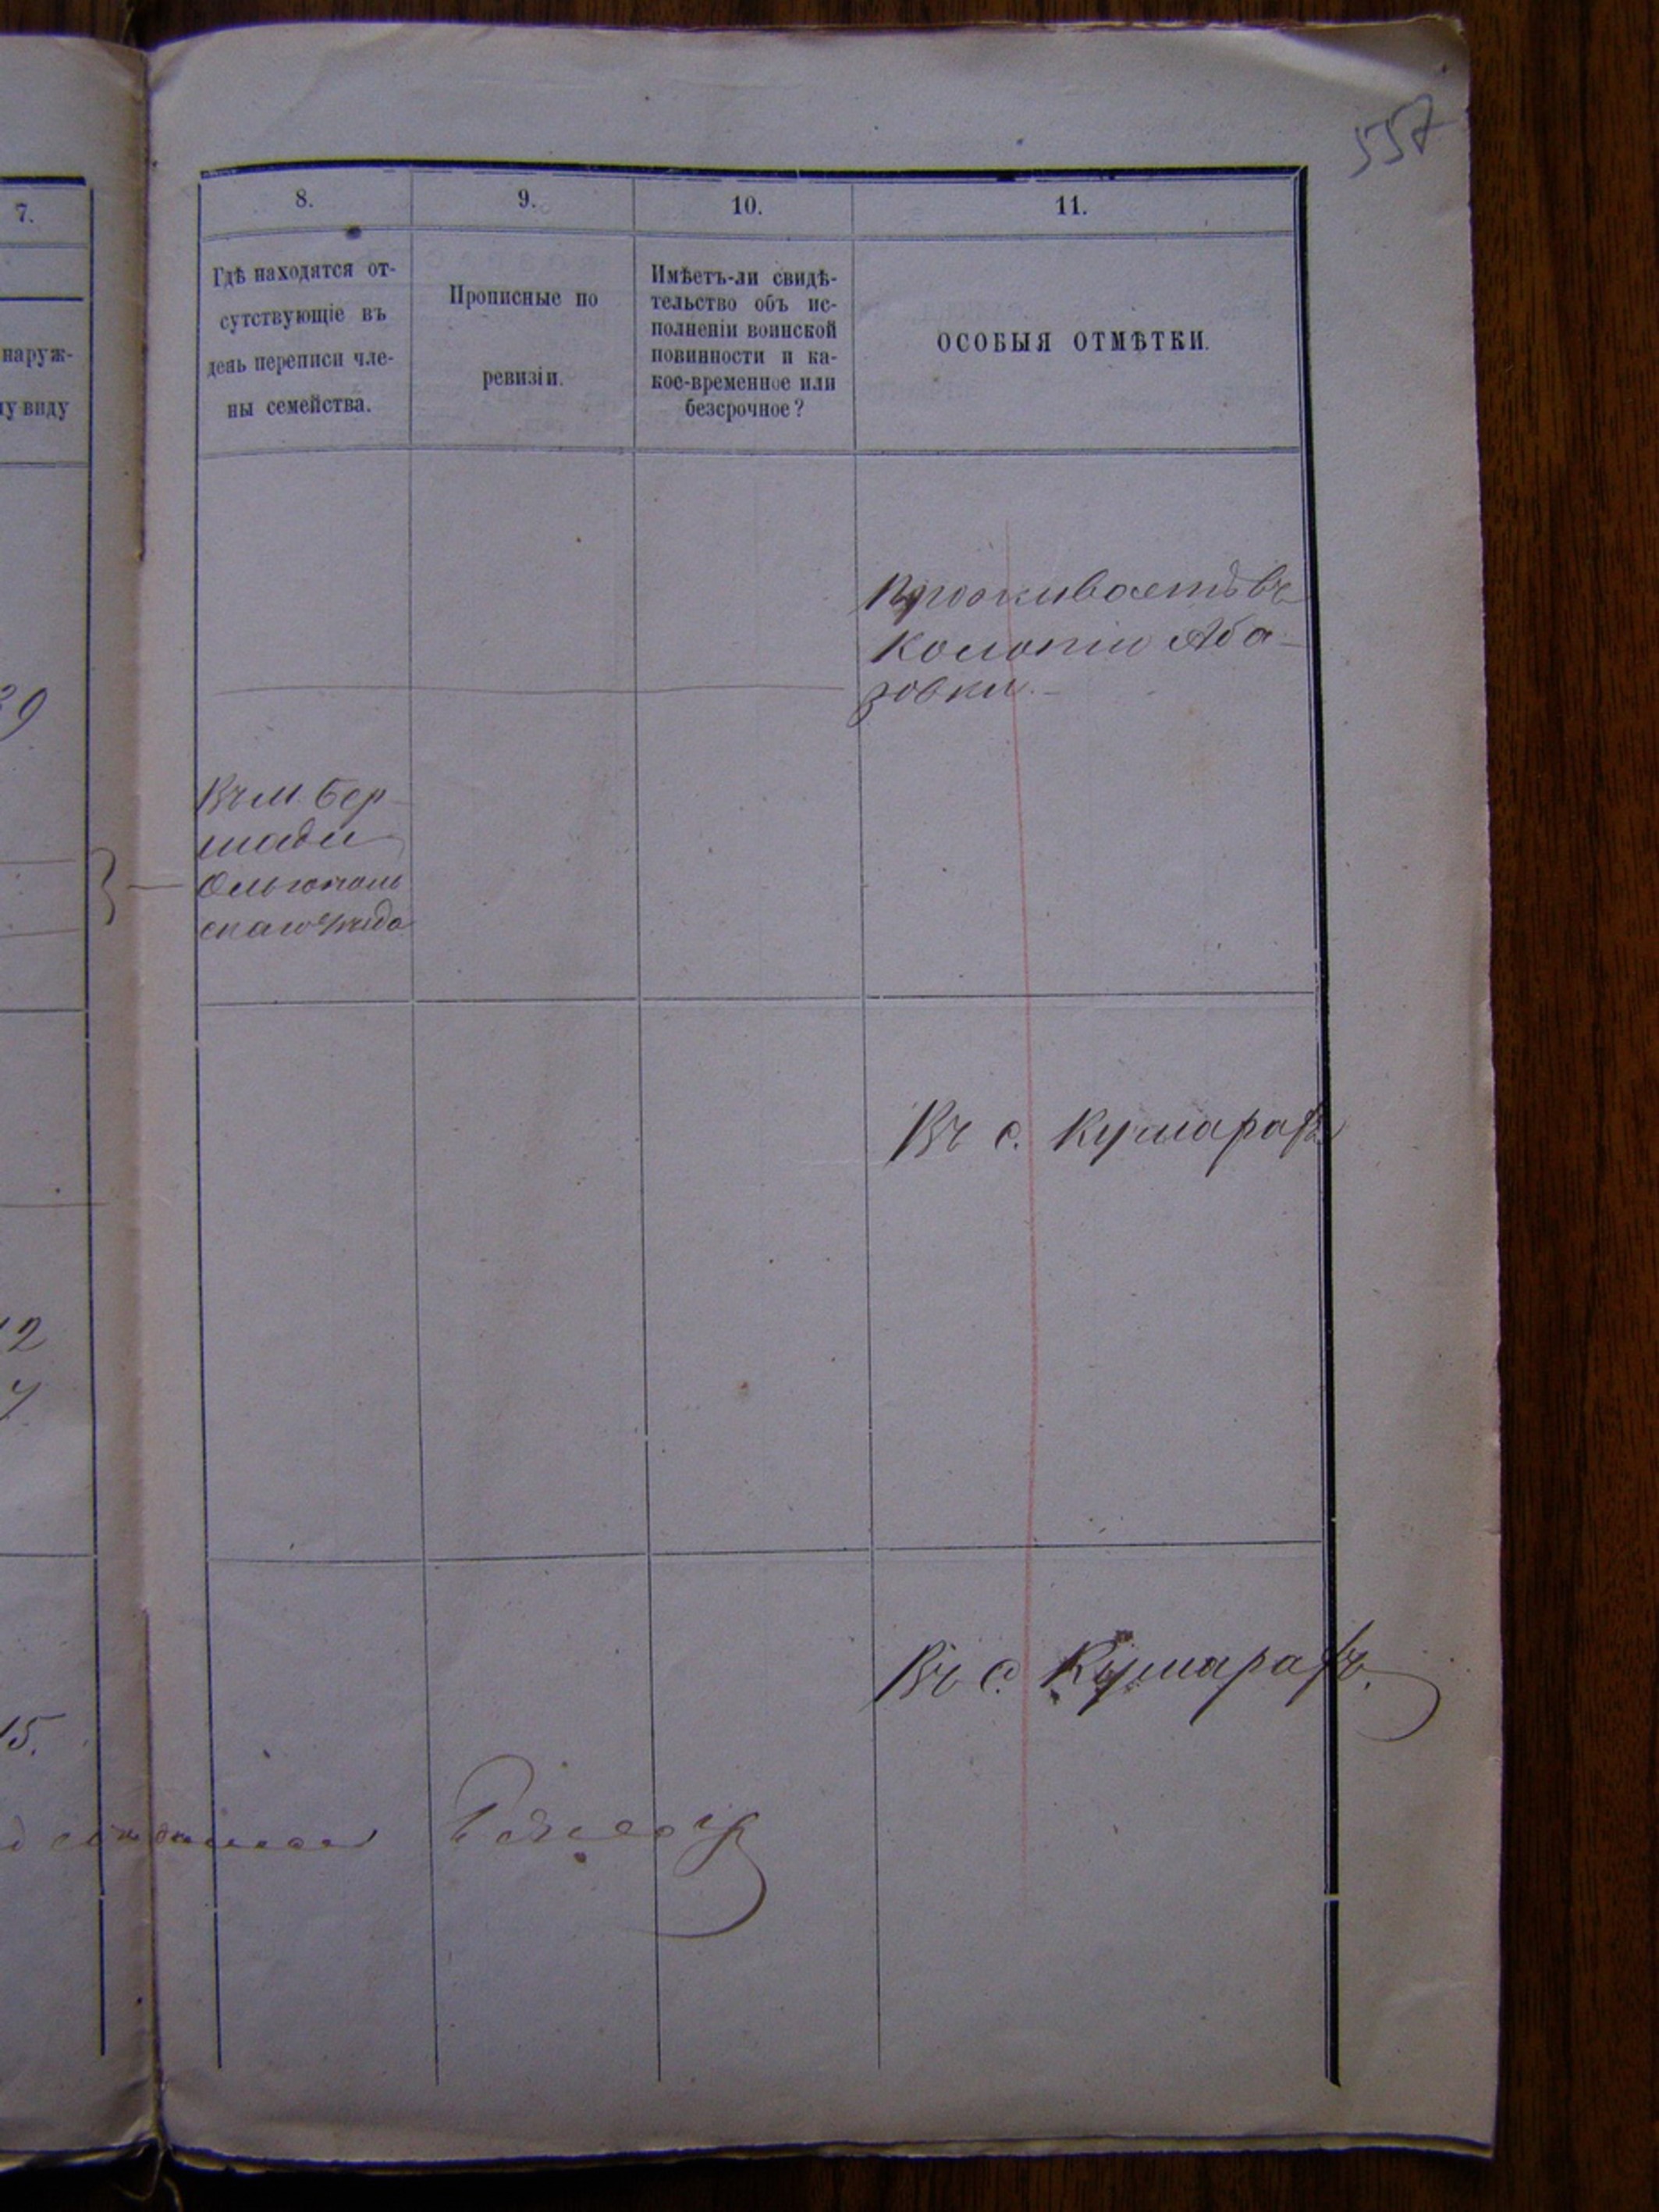 557
7.
8.
9.
10.
11.
наруж-
у виду
Гдѣ находятся от-
сутствующіе въ
день переписи чле-
ны семейства.
Прописные по
ревизіи.
Имѣетъ-ли свидѣ-
тельство объ ис-
полненіи воинской
повинности и ка-
кое-временное или
безсрочное?
ОСОБЫЯ ОТМѢТКИ.
Проживаетъ въ
колоніи Аба-
зовки.-
39
Въ м. Бер-
шади
Ольгополь
скаго уѣзда
Въ с. Кумарахъ
12
4
Въ с. Кумарахъ.
15.